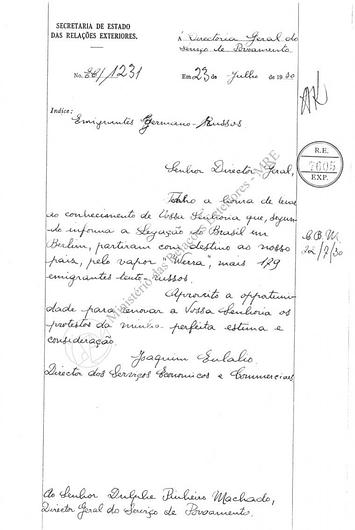 SECRETARIA DE ESTADO
DAS RELAÇÕES EXTERIORES.
á Directoria Geral do
Serviço de Povoamento
No. /1231
Em 23 de Julho de 1930
Indice:
Emigrantes Germano-Russos
R.E.
7605
EXP.
Senhor Director Geral,
Tenho a honra de levar
ao conhecimento de Vossa Senhoria que, segun-
do informa a Legação do Brasil em
Berlim, partiram com destino ao nosso
paiz, pelo vapor "Werra", mais 179
emigrantes teuto-russos.
C.B.M.
22/7/30
Aproveito a opportuni-
dade para renovar a Vossa Senhoria os
protestos da minha perfeita estima e
consideração.
Joaquim Eulalio
Director dos Serviços Economicos e Commerciaes
Ao Senhor Dulphe Pinheiro Machado,
Director Geral do Serviço de Povoamento.
Ministério das Relações Exteriores - MRE